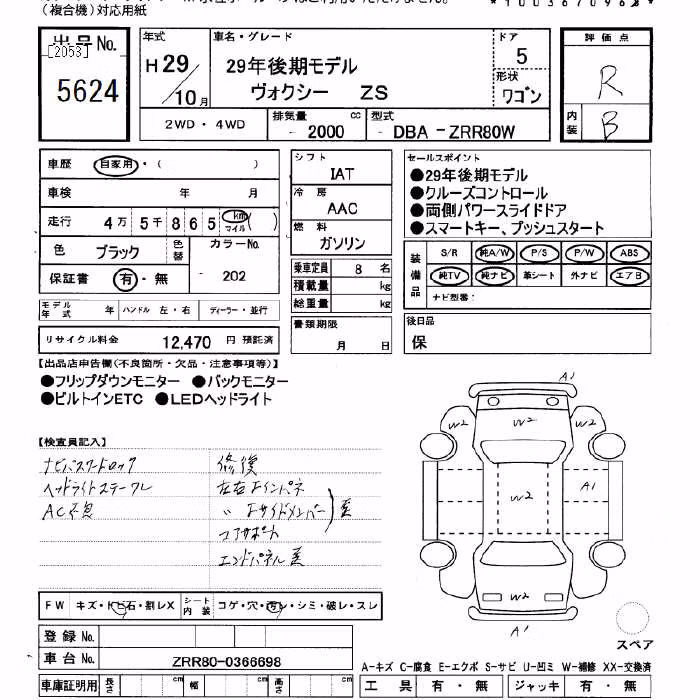 (複合機)対応用紙
出品No.
[2053]
5624
年式
H29/10月
車名・グレード
29年後期モデル
ヴォクシー ZS
ドア
5
形状
ワゴン
評価点
R
内装
B
2WD・4WD
排気量 cc
- 2000
型式
- DBA-ZRR80W
車歴 自家用・( )
車検 年 月
走行 4万 5千 865 km マイル ( )
色 ブラック 色替 カラーNo.
保証書 有・無 - 202
モデル年式 年 ハンドル 左・右 ディーラー・並行
リサイクル料金 12,470 円 預託済
シフト
IAT
冷房
AAC
燃料
ガソリン
乗車定員 8 名
積載量 kg
総重量 kg
書類期限
月 日
セールスポイント
●29年後期モデル
●クルーズコントロール
●両側パワースライドドア
●スマートキー、プッシュスタート
装備品
S/R 純A/W P/S P/W ABS
純TV 純ナビ 革シート 外ナビ エアB
ナビ型番:
後日品
保
【出品店申告欄(不良箇所・欠品・注意事項等)】
●フリップダウンモニター ●バックモニター
●ビルトインETC ●LEDヘッドライト
【検査員記入】
ナビパスワードロック 修復
ヘッドライトステーワレ 左右
AC不良
コアサポート
エンドパネル
A1
W2 W2 W2
W2
A1
W2
A1
スペア
FW キズ・トビ石・割レX シート内装 コゲ・穴・汚レ・シミ・破レ・スレ
登録No.
車台No. ZRR80-0366698
車庫証明用 長さ cm 幅 cm 高さ cm
A-キズ C-腐食 E-エクボ S-サビ U-凹ミ W-補修 XX-交換済
工具 有・無 ジャッキ 有・無